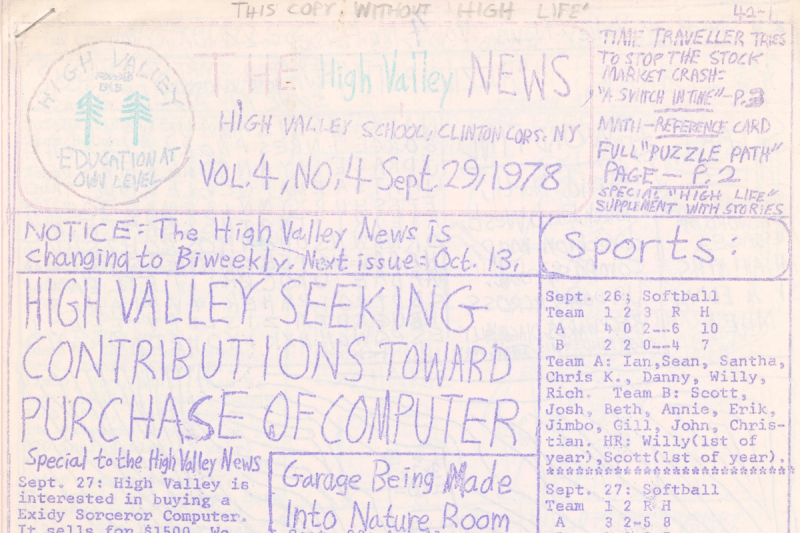 THIS COPY WITHOUT "HIGH LIFE"
42-1
HIGH VALLEY
EDUCATION AT
OWN LEVEL
THE High Valley NEWS
HIGH VALLEY SCHOOL, CLINTON CORS. NY
VOL. 4, NO. 4 Sept. 29, 1978
TIME TRAVELLER TRIES
TO STOP THE STOCK
MARKET CRASH:
"A SWITCH IN TIME"-P.3
MATH-REFERENCE CARD
FULL "PUZZLE PATH"
PAGE - P. 2
SPECIAL "HIGH LIFE"
SUPPLEMENT WITH STORIES
NOTICE: The High Valley News is
changing to Biweekly. Next issue: Oct. 13.
HIGH VALLEY SEEKING
CONTRIBUTIONS TOWARD
PURCHASE OF COMPUTER
Special to the High Valley News
Sept. 27: High Valley is
interested in buying a
Exidy Sorceror Computer.
It sells for $1500. We
Garage Being Made
Into Nature Room
Sports:
Sept. 26: Softball
Team 1 2 3 R H
A 4 0 2--6 10
B 2 2 0--4 7
Team A: Ian,Sean, Santha,
Chris K., Danny, Willy,
Rich. Team B: Scott,
Josh, Beth, Annie, Erik,
Jimbo, Gill, John, Chris-
tian. HR: Willy(1st of
year),Scott(1st of year).
*************************
Sept. 27: Softball
Team 1 2 R H
A 3 2-5 8